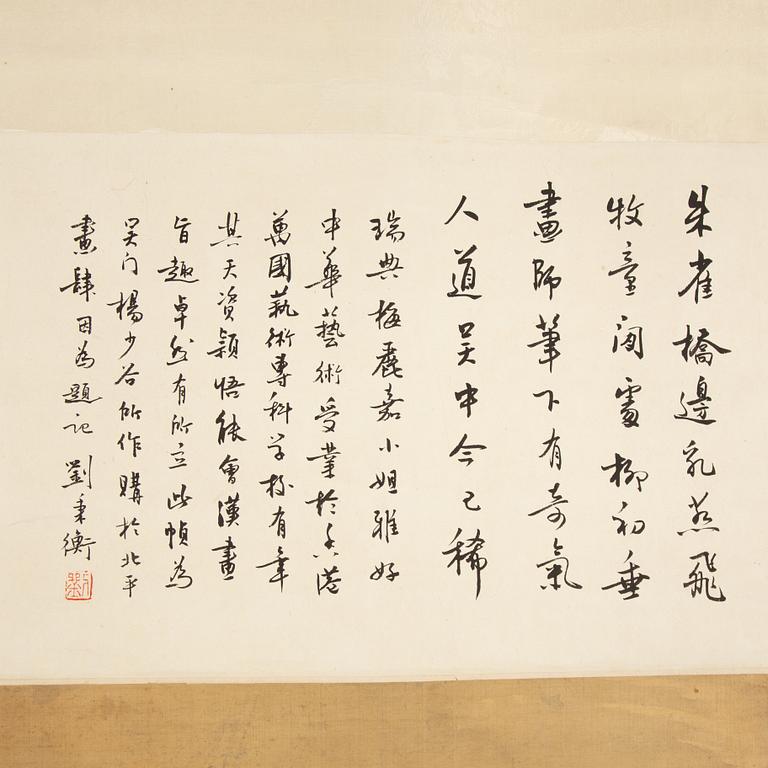 朱雀橋邊乳燕飛
牧童閑處柳初垂
畫師筆下有奇氣
人道吳中今已稀
瑞典梅麗嘉小姐雅好
中華藝術受業於香港
萬國藝術專科學校有年
其天資穎悟能會漢畫
旨趣卓然有所立此幀為
吳门楊少谷所作購於北平
畫肆因為題記 劉秉衡